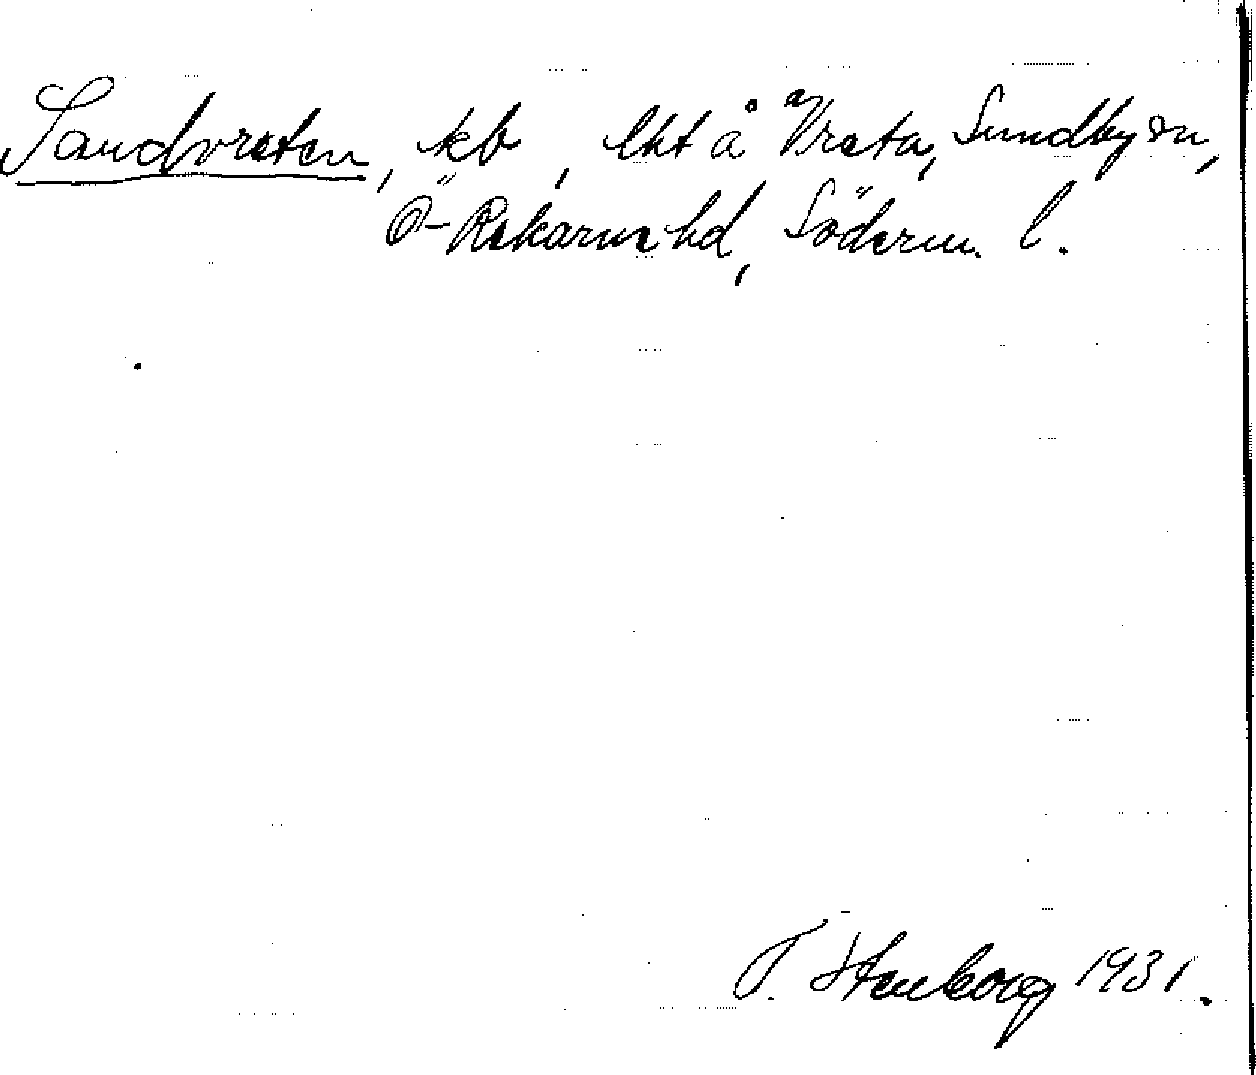 Sandvreten, kb, lht å Vreta, Sundby sn,
Ö-Rekarne hd, Söderm. l.
T. Stenborg 1931.